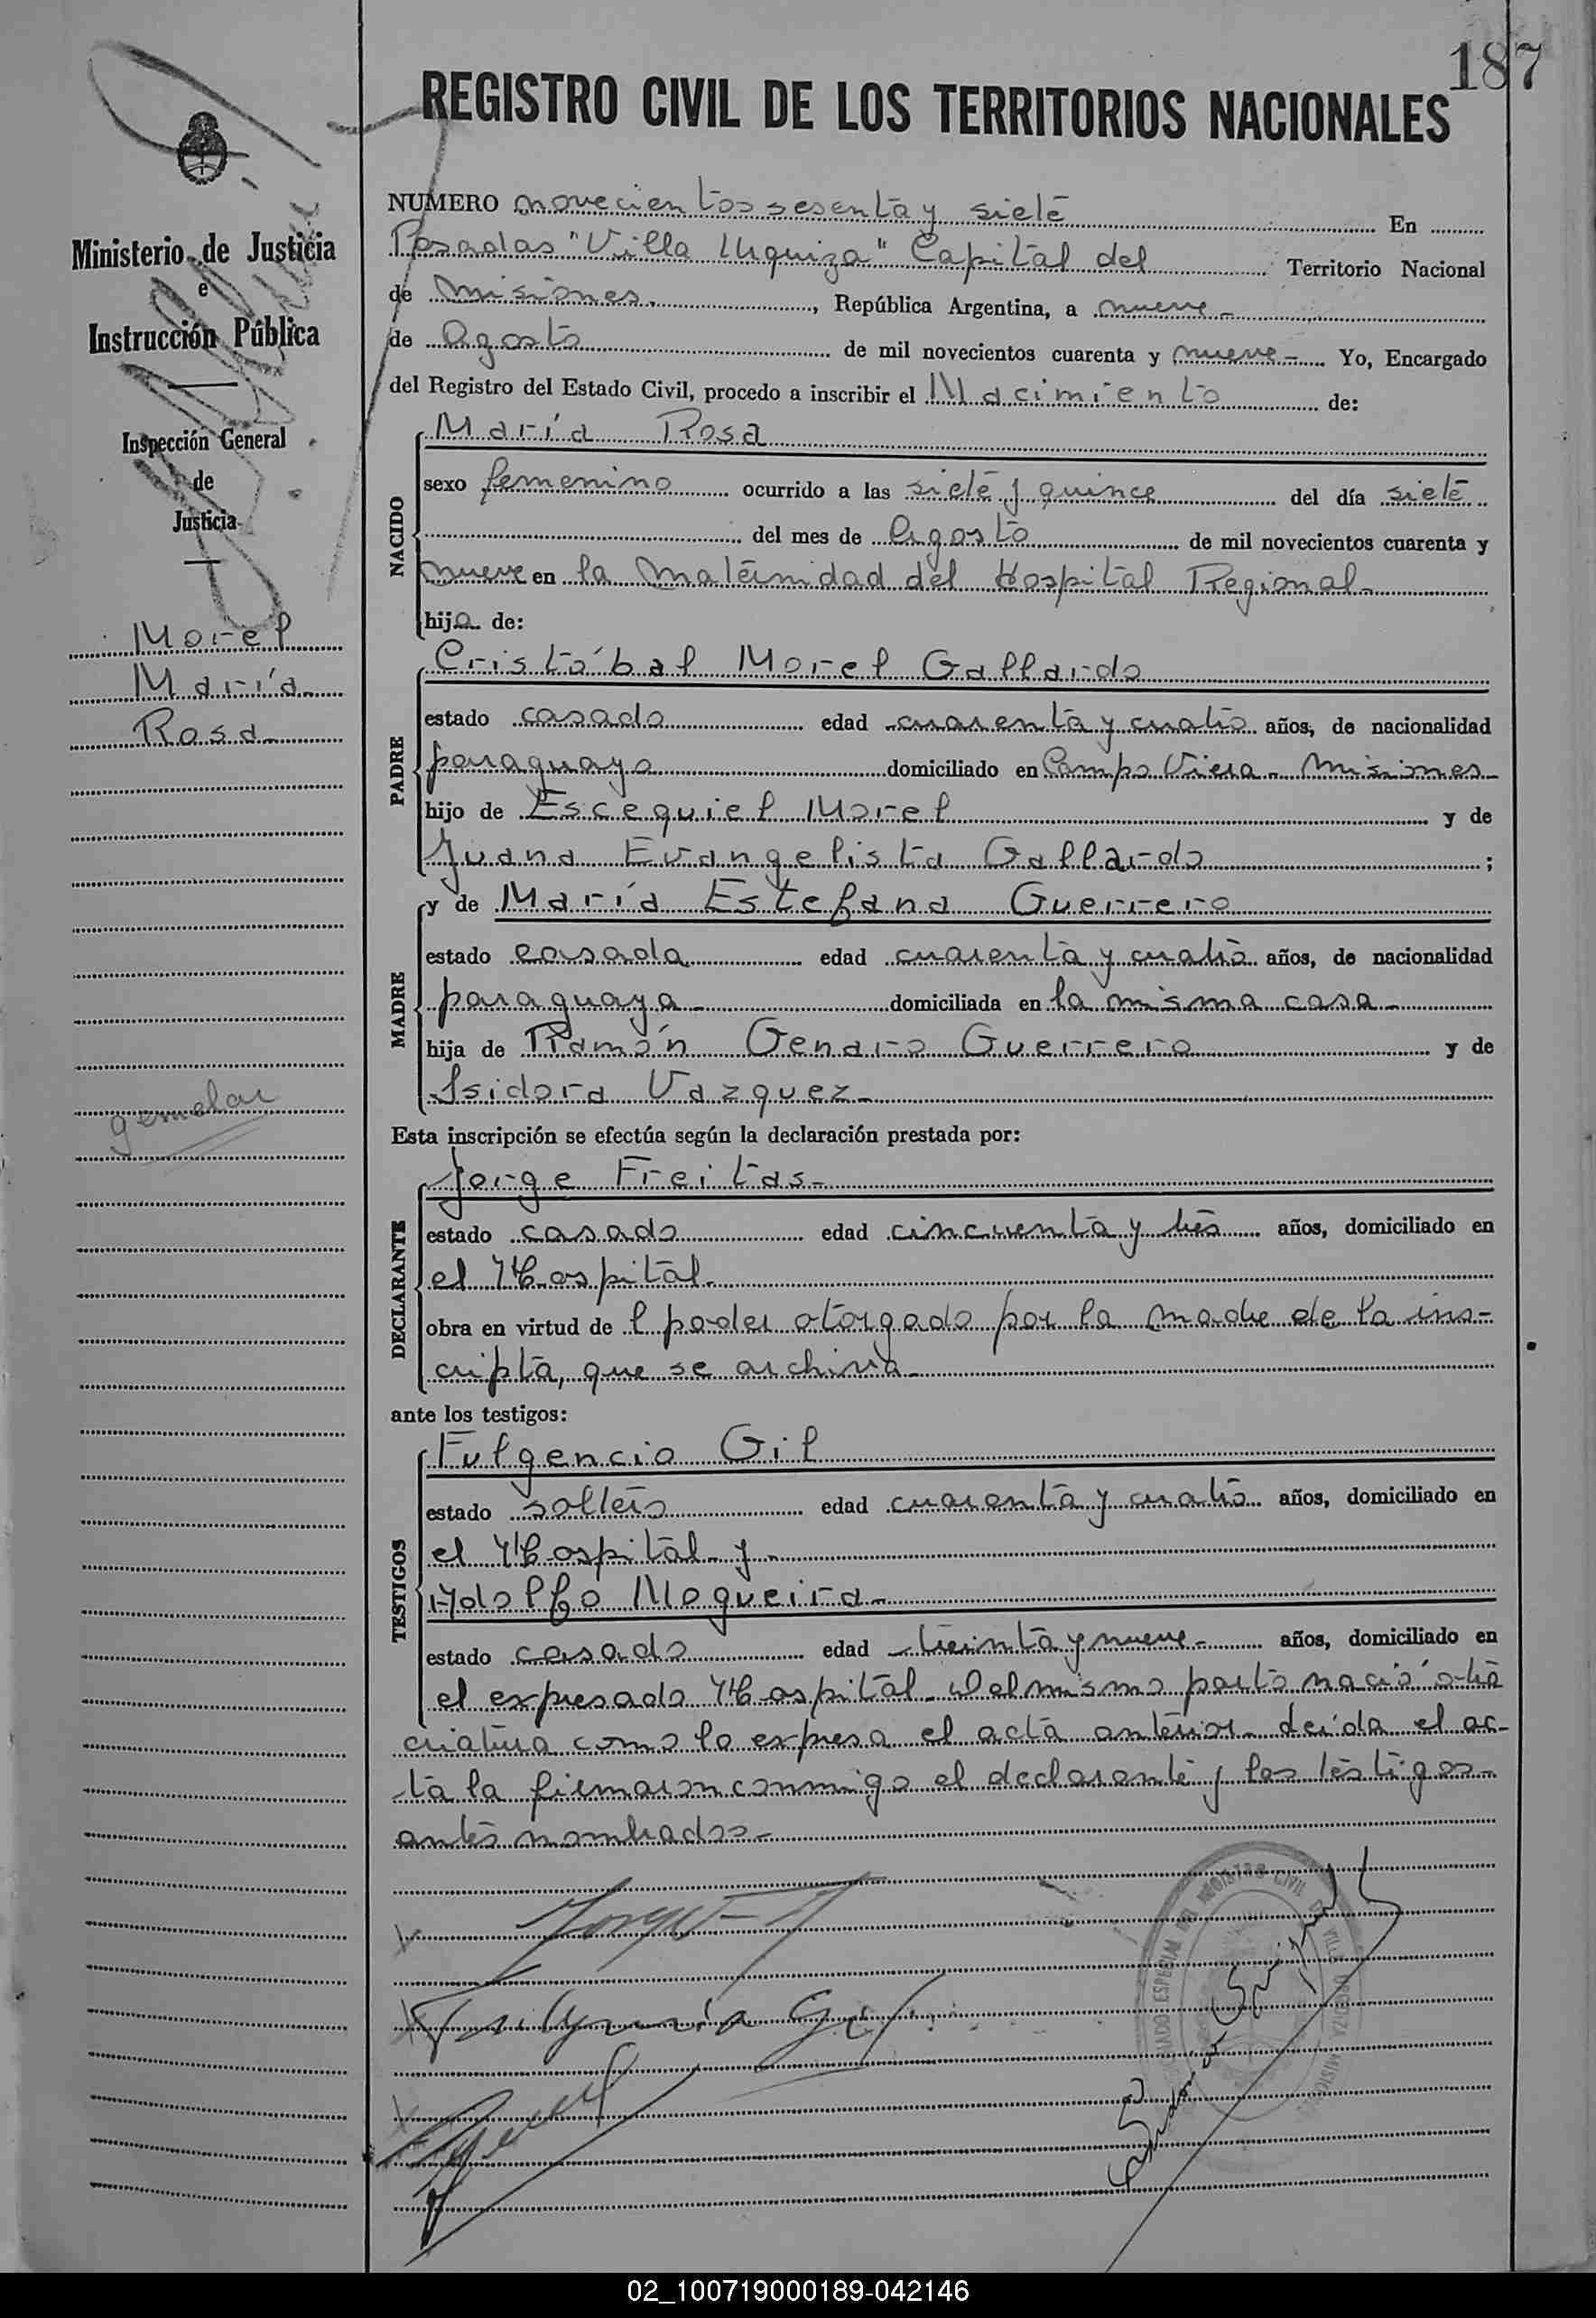 187
REGISTRO CIVIL DE LOS TERRITORIOS NACIONALES
Ministerio de Justicia
e
Instrucción Pública
Inspección General
de
Justicia
Morel
María
Rosa
gemelar
NUMERO novecientos sesenta y siete En
Posadas "Villa Urquiza" Capital del Territorio Nacional
de Misiones, República Argentina, a nueve
de Agosto de mil novecientos cuarenta y nueve Yo, Encargado
del Registro del Estado Civil, procedo a inscribir el Nacimiento de:
NACIDO
María Rosa
sexo femenino ocurrido a las siete y quince del día siete
del mes de Agosto de mil novecientos cuarenta y
nueve en la maternidad del Hospital Regional
hija de:
PADRE
Cristóbal Morel Gallardo
estado casado edad cuarenta y cuatro años, de nacionalidad
paraguayo domiciliado en Campo Viera - Misiones
hijo de Escequiel Morel y de
Juana Evangelista Gallardo ;
MADRE
y de María Estefana Guerrero
estado casada edad cuarenta y cuatro años, de nacionalidad
paraguaya domiciliada en la misma casa
hija de Ramón Genaro Guerrero y de
Isidora Vazquez
Esta inscripción se efectúa según la declaración prestada por:
DECLARANTE
Jorge Freitas
estado casado edad cincuenta y tres años, domiciliado en
el Hospital
obra en virtud de l poder otorgado por la madre de la ins-
cripta, que se archiva
ante los testigos:
TESTIGOS
Fulgencio Gil
estado soltero edad cuarenta y cuatro años, domiciliado en
el Hospital y
Adolfo Nogueira
estado casado edad treinta y nueve años, domiciliado en
el expresado Hospital. Del mismo parto nació otra
criatura como lo expresa el acta anterior. Leída el ac-
ta la firmaron conmigo el declarante y los testigos
antes nombrados
Fulgencio Gil
REGISTRO CIVIL
VILLA URQUIZA
02_100719000189-042146